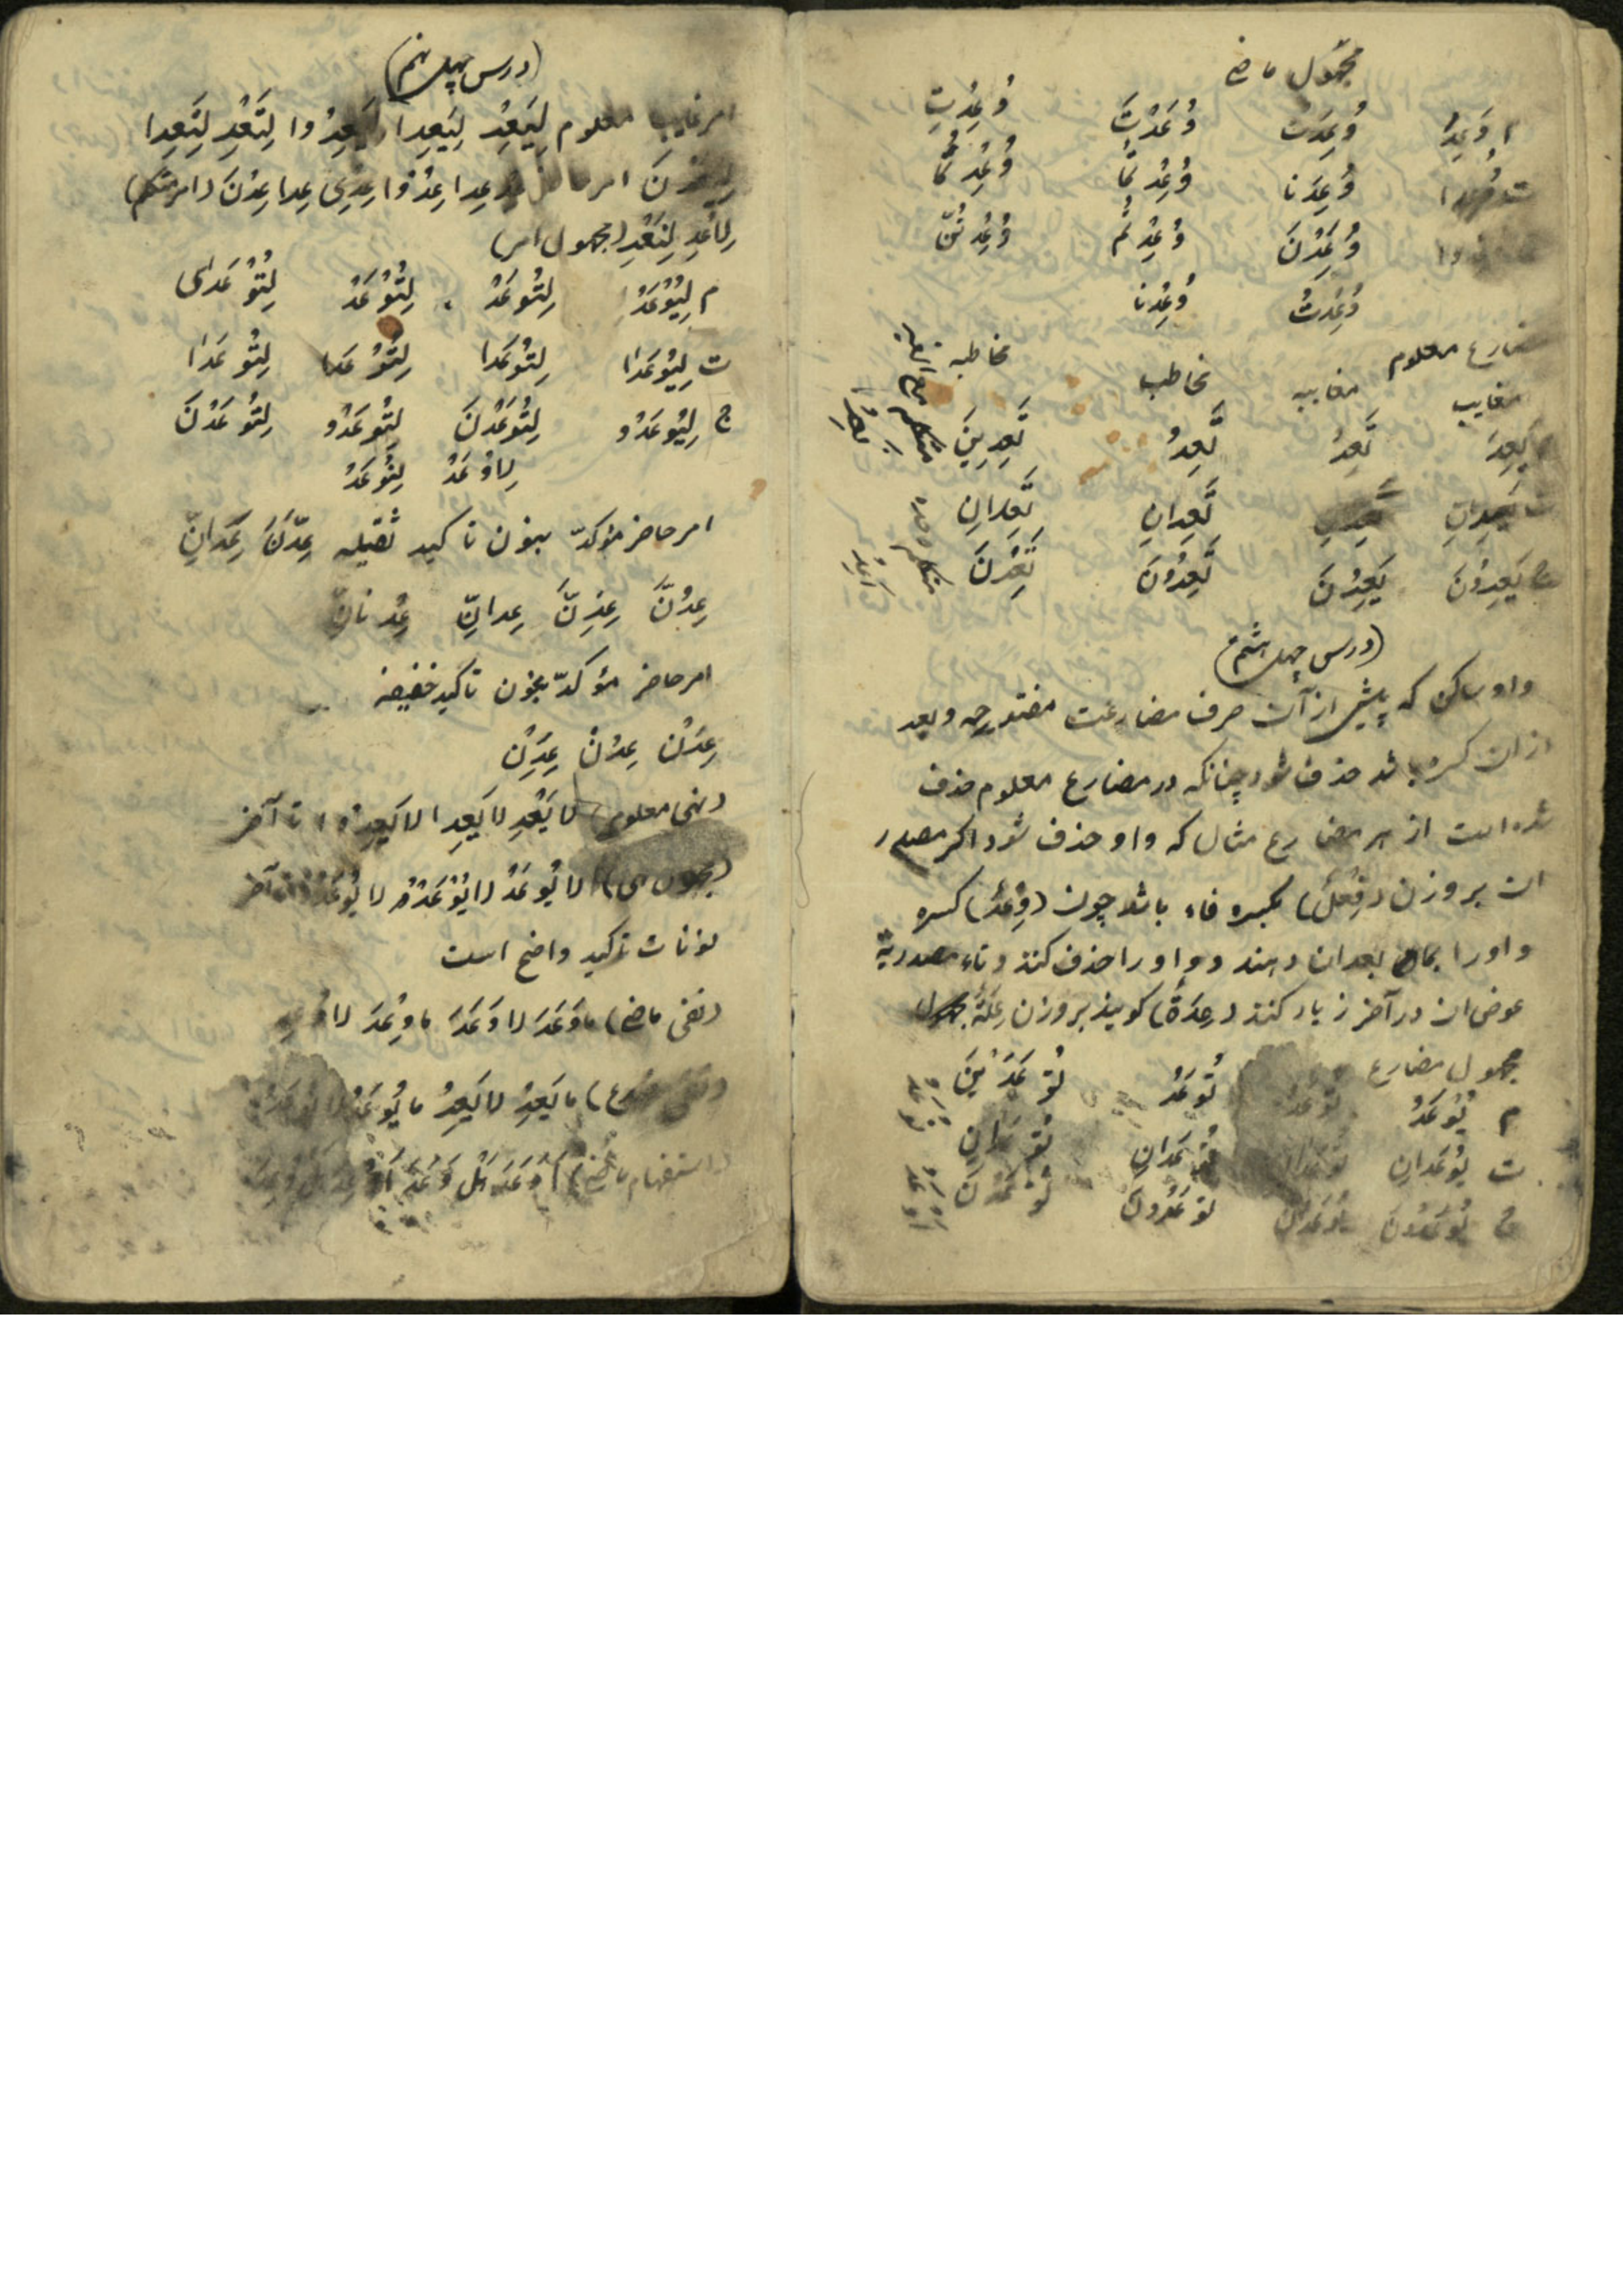 مجهول ماضی
م وُعِدَ وُعِدَت وُعِدْتَ وُعِدْتِ
وُعِدَتا وُعِدْتُمَا وُعِدْتُمَا
وُعِدْنَ وُعِدْتُم وُعِدْتُنَّ
وُعِدْتُ وُعِدْنا
مضارع معلوم
مغایب مغایبه مخاطب مخاطبه
یَعِدُ تَعِدُ تَعِدُ تَعِدِینَ
ت یَعِدانِ تَعِدانِ تَعِدانِ
ج یَعِدُونَ یَعِدْنَ تَعِدُونَ تَعِدْنَ
متکلم
(درس چهل هشتم)
واو ساکن که پیش از آن حرف مضارعت مفتوحه و بعد
از ان کسره باشد حذف شود چنانکه در مضارع معلوم حذف
شده است از هر مضارع مثال که واو حذف شود اکر مصدر
ان بر وزن (فِعْل) بکسره فاء باشد چون (وِعْد) کسره
واو را بمابعد ان دهند و واو را حذف کنند و تاء مصدریة
عوض ان در آخر زیاد کنند (عِدَةً) کویند بر وزن عِلَة
مجهول مضارع
م یُوعَدُ تُوعَدُ تُوعَدُ تُوعَدِینَ
ت یُوعَدانِ تُوعَدانِ
ج یُوعَدُونَ یُوعَدْنَ تُوعَدُونَ تُوعَدْنَ
(درس چهل نهم)
امر غایب معلوم لِیَعِدْ لِیَعِدا لِیَعِدُوا لِتَعِدْ لِتَعِدا
لِیَعِدْنَ امر حاضر عِدْ عِدا عِدُوا عِدِی عِدا عِدْنَ (امر متکلم)
لِاَعِدْ لِنَعِدْ (مجهول امر)
م لِیُوعَدْ لِتُوعَدْ لِتُوعَدْ لِتُوعَدی
ت لِیُوعَدا لِتُوعَدا لِتُوعَدا لِتُوعَدا
ج لِیُوعَدُو لِتُوعَدْنَ لِتُوعَدُو لِتُوعَدْنَ
لِاوُعَدْ لِنُوعَدْ
امر حاضر مؤکدّ بنون تاکید ثقیله عِدَنَّ عِدانِّ
عِدُنَّ عِدِنَّ عِدانِّ عِدْنانِّ
امر حاضر مؤکدّ بنون تاکید خفیفه
عِدَنْ عِدُنْ عِدِنْ
(نهی معلوم) لا یَعِدْ لا یَعِدا لا یَعِدُوا تا آخر
(مجهول نهی) لا یُوعَدْ لا یُوعَدا لا یُوعَدُو تا آخر
نونات تاکید واضح است
(نفی ماضی) ما وَعَدَ لا وَعَدَ ما وُعِدَ لا وُعِدَ
(نفی مضارع) ما یَعِدُ لا یَعِدُ ما یُوعَدُ لا یُوعَدُ
(استفهام ماضی) أَوَعَدَ هَل وَعَدَ